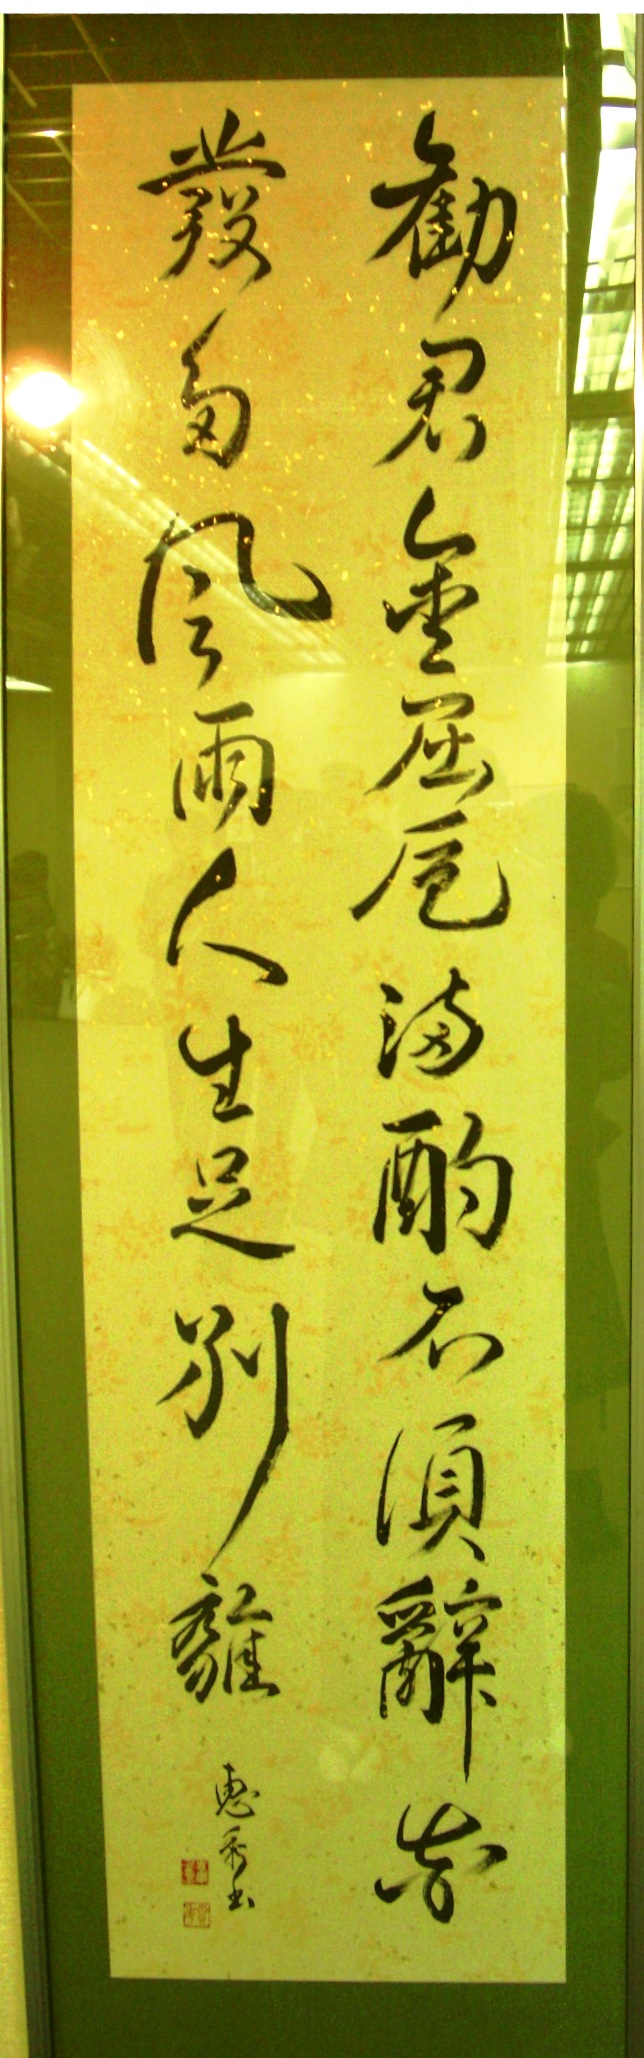 勸君金屈卮滿酌不須辭花
發多風雨人生足別離
惠秀書